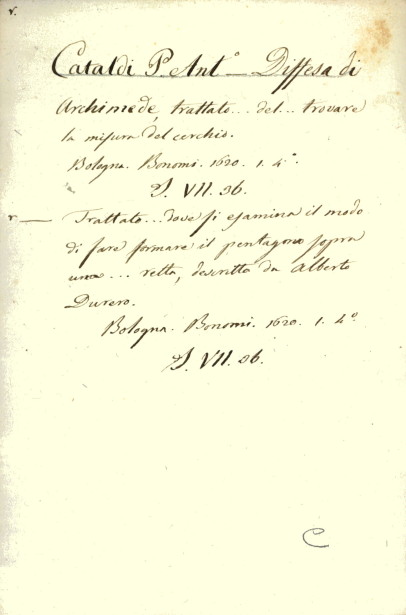 v.
Cataldi P. Ant.° — Diffesa di
Archimede, trattato... del... trovare
la misura del cerchio.
Bologna. Bonomi. 1620. 1. 4°.
S. VII. 36.
v — Trattato... dove si esamina il modo
di fare formare il pentagono sopra
una... retta, descritto da Alberto
Durero.
Bologna. Bonomi. 1620. 1. 4°
S. VII. 36.
C